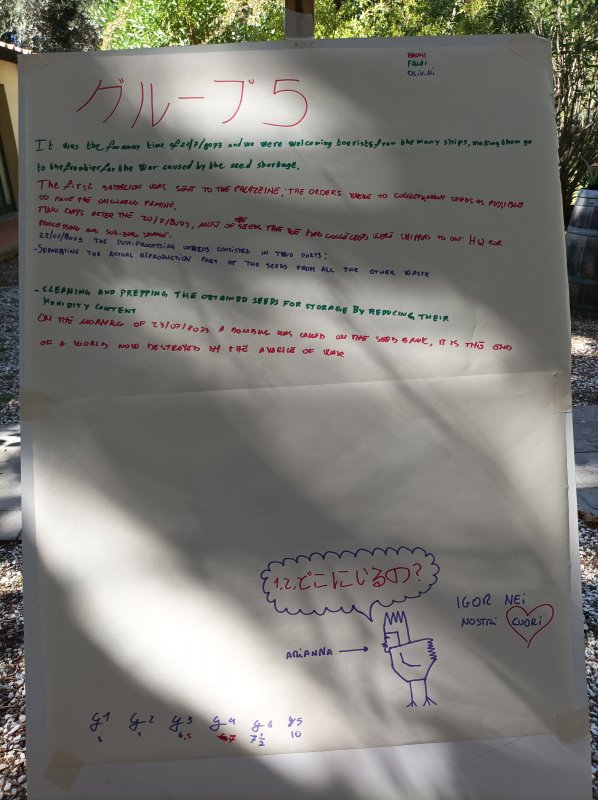 BRUNI
FALAI
OLIV.Ni
グループ5
It was the faraway time of 21/7/8023 and we were welcoming tourists from the many ships, making them go
to the frontier for the war caused by the seed shortage.
The first battalion was sent to the palazzine, the orders were to collect many seeds as possible
to face the oncoming famine.
Two days after the 20/7/8023, most of seeds that we had collected were shipped to our HQ for
processing and sub-zero storage.
22/07/8023 the post-processing of seeds consisted in two parts:
-Separating the actual reproduction part of the seeds from all the other waste
- Cleaning and prepping the obtained seeds for storage by reducing their
humidity content
On the morning of 23/07/8023 a bombing was called on the seed bank, it is the end
of a world now destroyed by the avarice of war
1,2,どこにじるの?
IGOR NEi
NOSTRI CUORI
ARIANNA
g1 g2 g3 g4 g6 g5
6,5 7 7 1/2 10